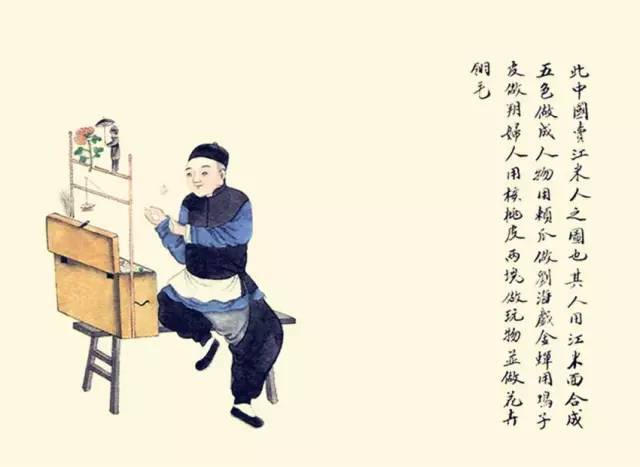 此中國賣江米人之圖也其人用江米面合成
五色做成人物用賴瓜做劉海戲金蟬用鳴子
皮做翔婦人用核桃皮兩塊做玩物並做花卉
翎毛